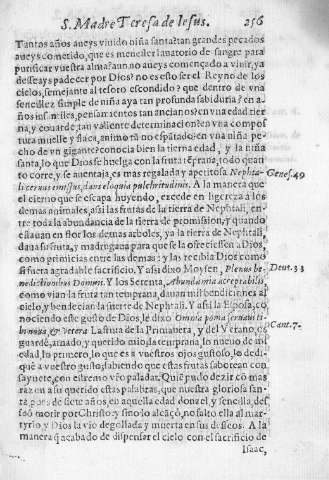 S. Madre Teresa de Iesus. 256
Tantos años aueys viuido niña santa? tan grandes pecados
aueys cometido, que es menester lauatorio de sangre para
purificar vuestra alma? aun no aueys començado a viuir, ya
desseays padecer por Dios? no es esto ser el Reyno de los
cielos, semejante al tesoro escondido? que dentro de vna
senzillez simple de niña aya tan profunda sabiduria? en a
ños infantiles, pensamientos tan ancianos? en vna edad tier
na, y couarde, tan valiente determinacion? en vna compos
tura muelle y flaca, animo tã no espãtado? en vna niña pe
cho de vn gigante? conocia bien la tierna edad, y la niña
santa, lo que Dios se huelga con la fruta tẽprana, todo quan
to corre, y se auentaja, es mas regalada y apetitosa Nephta- Genes. 49
li ceruus emissus, dans eloquia pulchritudinis. A la manera que
el cieruo que se escapa huyendo, excede en ligereza a los
demas animales, assi las frutas de la tierra de Nephtali, en-
tre toda la abundancia de la tierra de promission, y quando
estauan en flor los demas arboles, ya la tierra de Nephtali,
daua su fruta, y madrugaua para que se la ofreciessen a Dios,
como primicias entre las demas: y las recibia Dios como
si fuera agradable sacrificio. Y assi dixo Moysen, Plenus be- Deut. 33
nedictionibus Domini. Y los Setenta, Abundantia acceptabilis,
como vian la fruta tan temprana, dauan mil bendiciones al
cielo, y bendecian la suerte de Nephtali. Y assi la Esposa, co
nociendo este gusto de Dios, le dixo Omnia poma seruaui ti-
bi noua, & vetera La fruta de la Primauera, y del Verano, os Cant. 7.
guardè, amado, y querido mio, la temprana, lo nueuo de mi
edad, lo primero, lo que es a vuestros ojos gustoso, lo dedi-
què a vuestro gusto, sabiendo que estas frutas saborean con
saynete, con estremo vrõ paladar. Quiẽ pudo dezir cõ mas
razon assi querido estas palabras, que nuestra gloriosa san-
ta pues de siete años, en aquella edad donzel, y senzilla, des
seò morir por Christo? y sino lo alcaçò, no falto ella al mar-
tyrio, y Dios la vio degollada y muerta en sus desseos. A la
manera q̃ acabado de dispensar el cielo con el sacrificio de
Isaac,